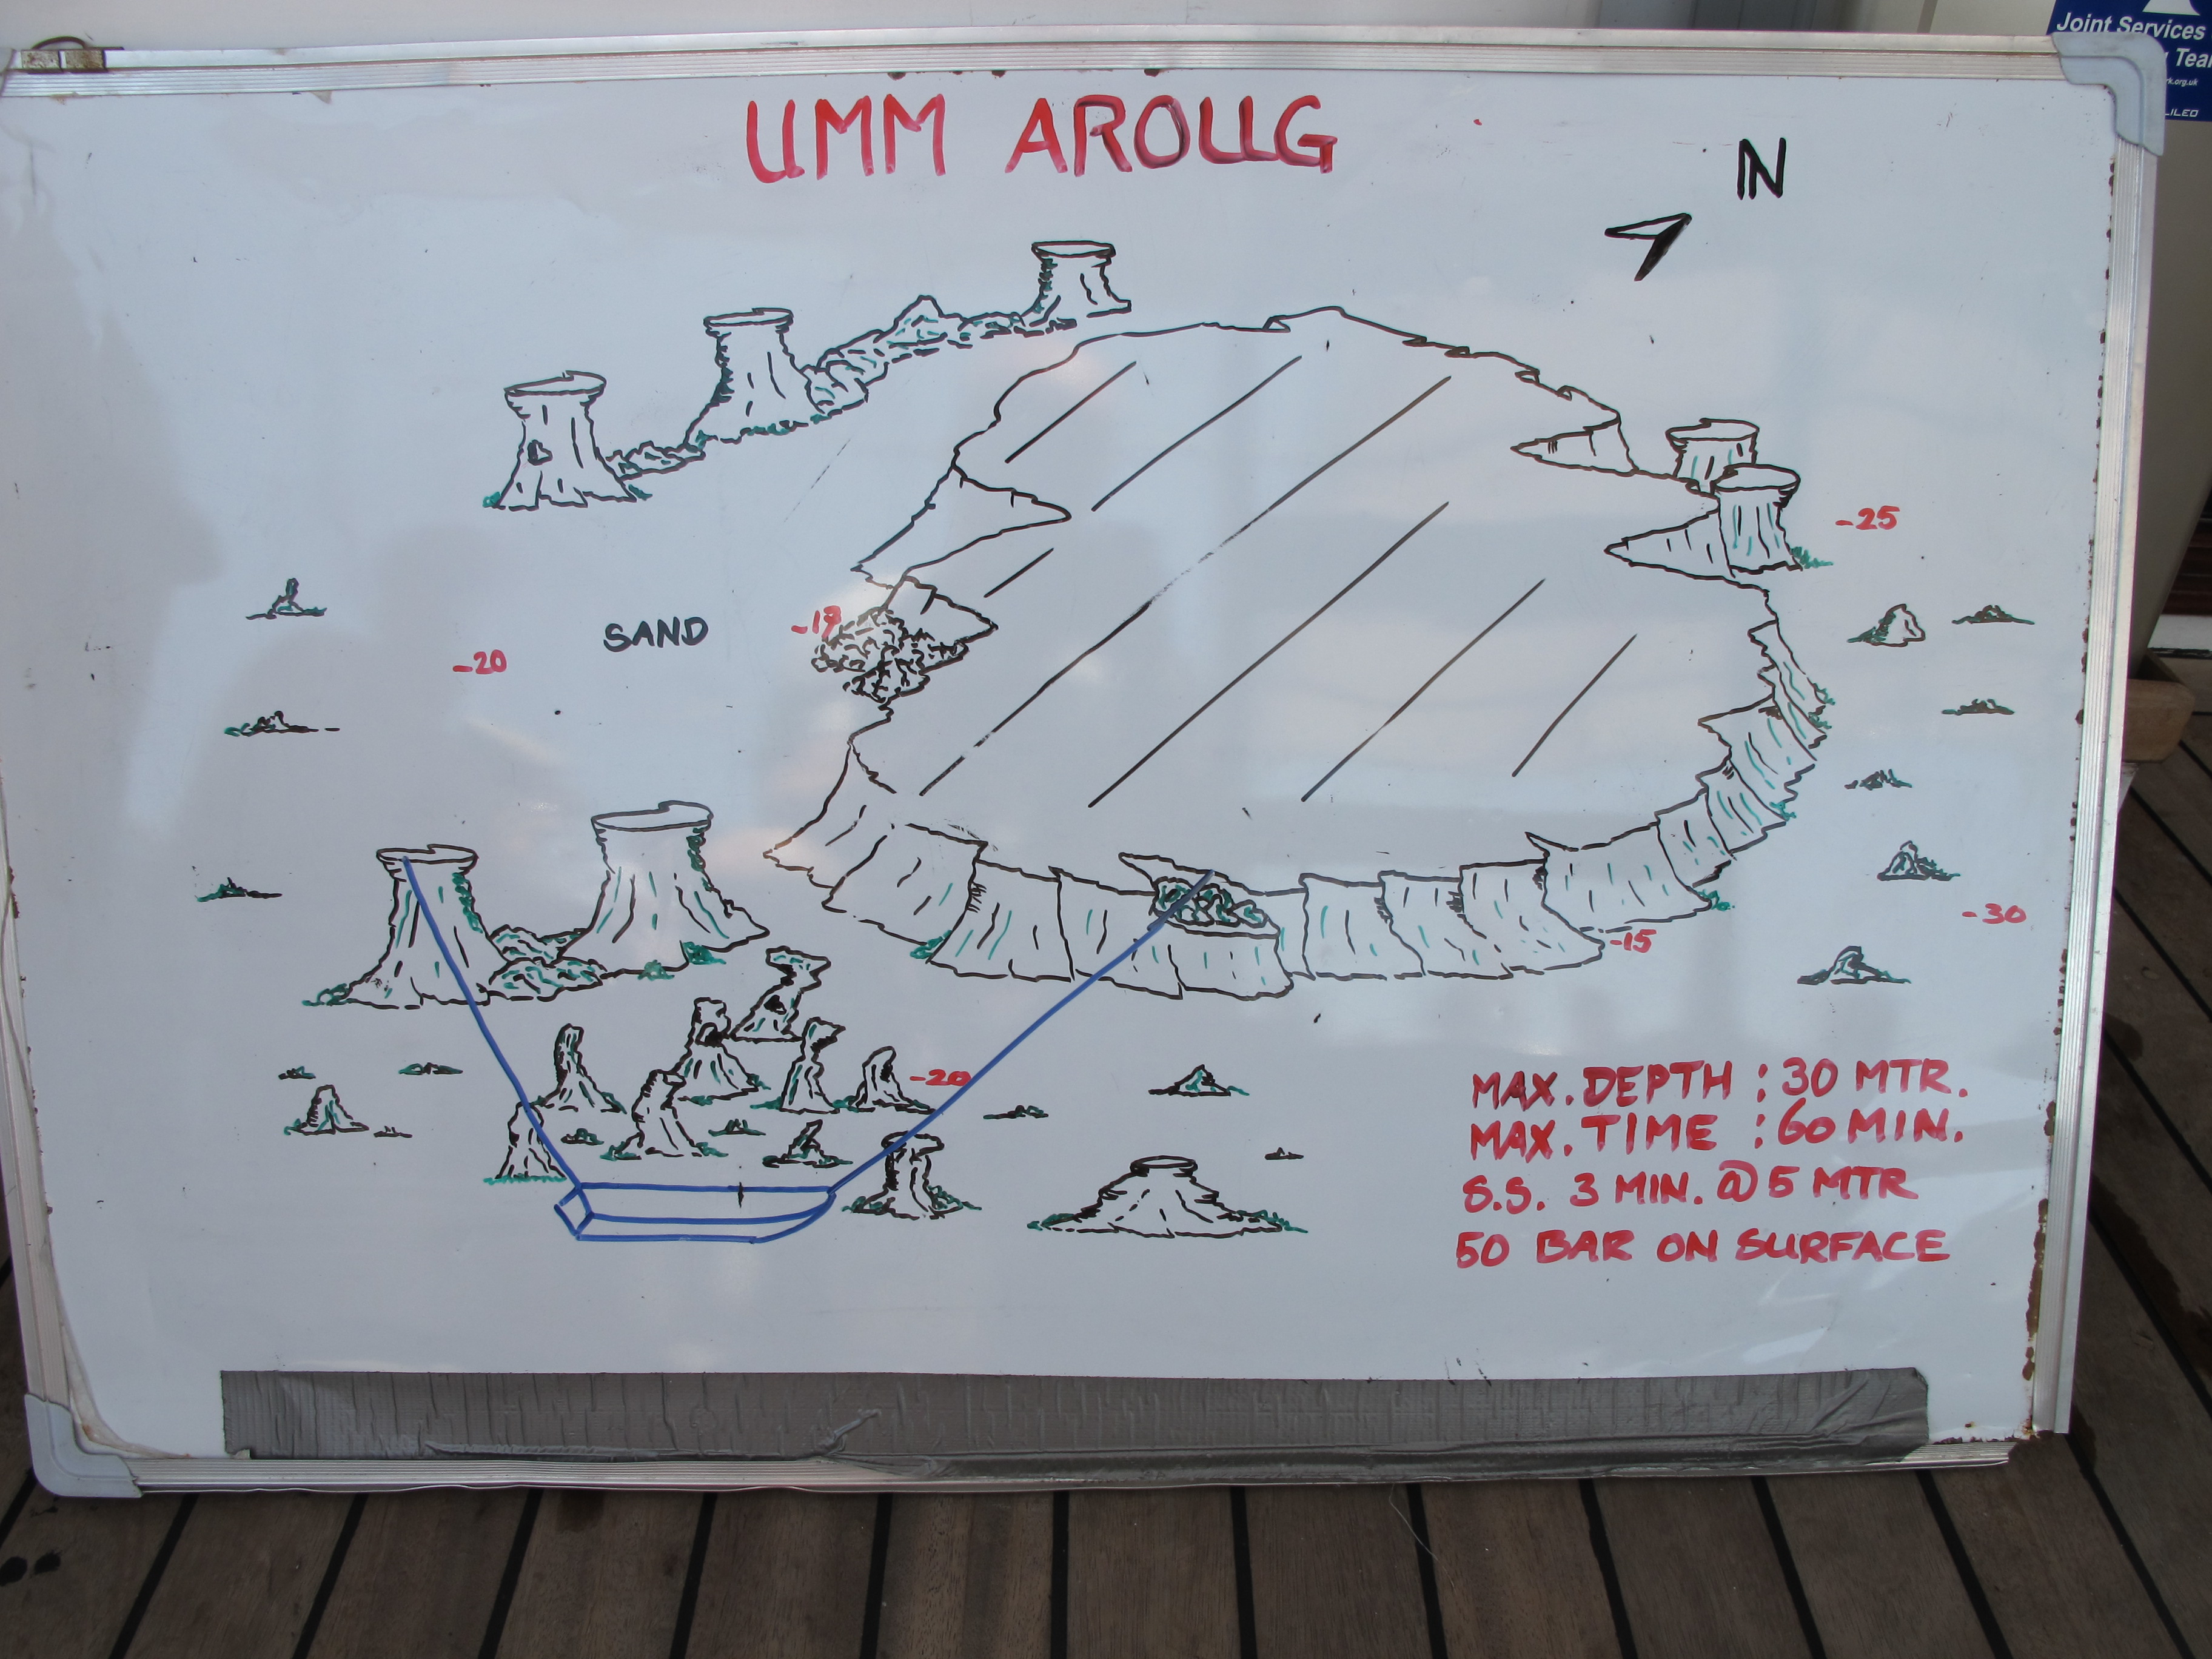 Joint Services
rk.org.uk
UMM AROUG
N
-25
-17
SAND
-20
-30
-15
-20
MAX. DEPTH : 30 MTR.
MAX. TIME : 60 MIN.
S.S. 3 MIN. @ 5 MTR
50 BAR ON SURFACE